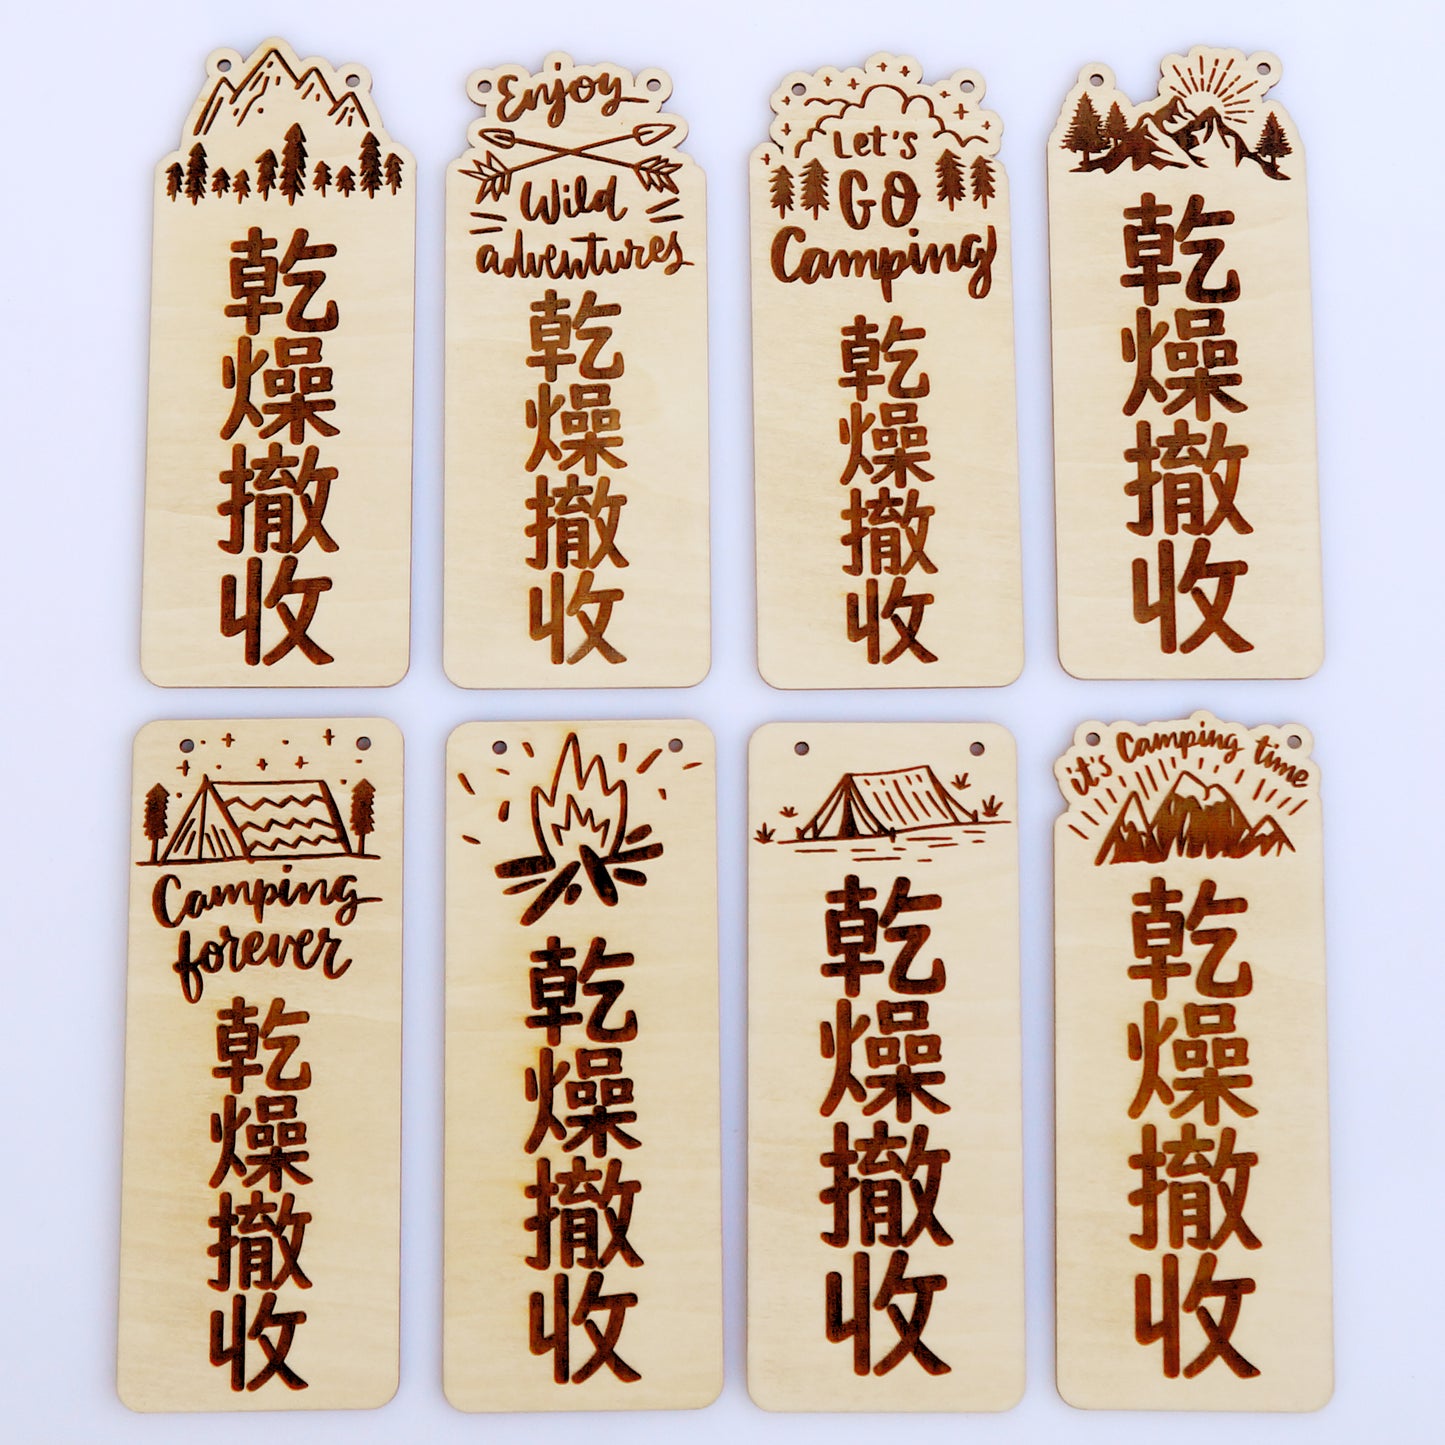 乾燥撤收
Enjoy
Wild
adventures
乾燥撤收
Let's
GO
Camping
乾燥撤收
乾燥撤收
Camping
forever
乾燥撤收
乾燥撤收
乾燥撤收
it's Camping time
乾燥撤收